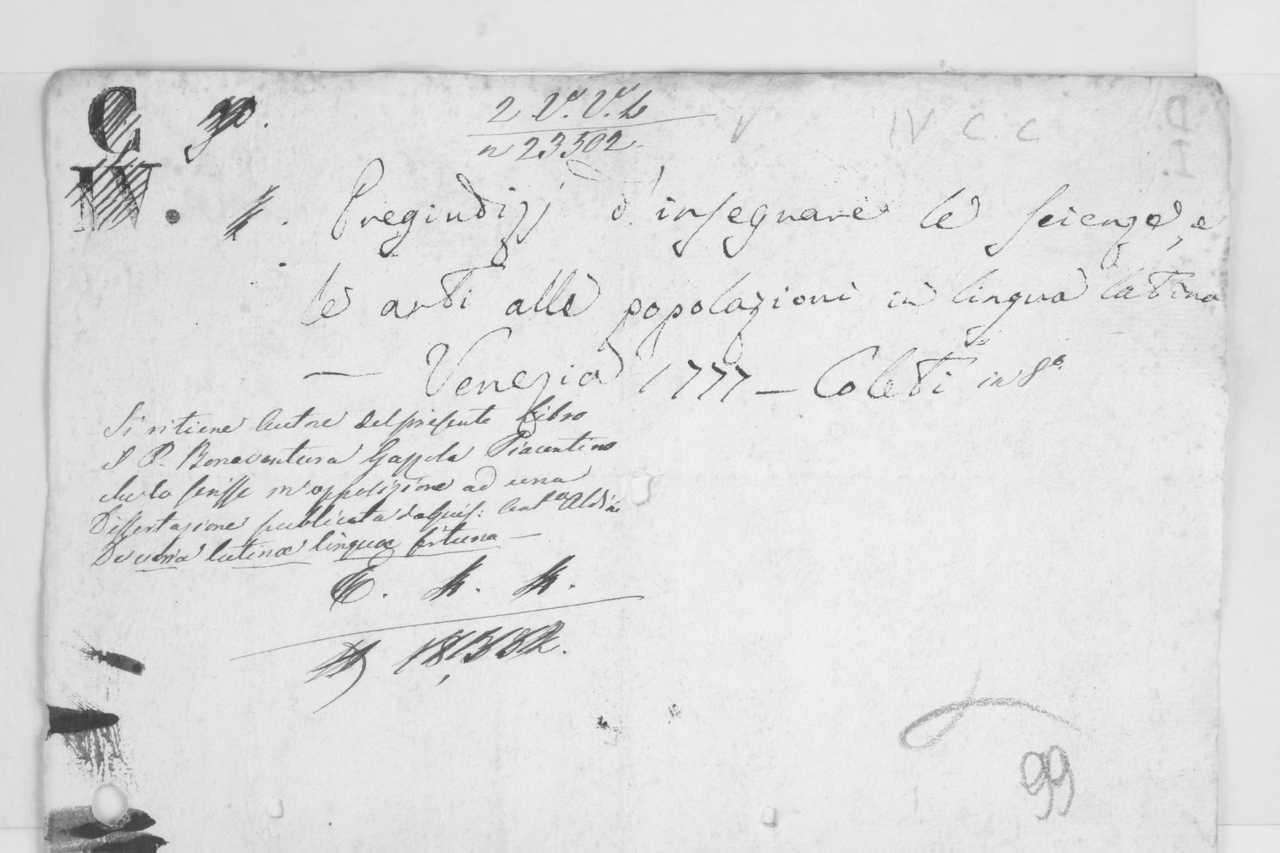 C 30.
2 V.r V.r L
IV. 4.
n 23502
V IV C. C
D.
I.
Pregiudizj d'insegnare le scienze, e
le arti alle popolazioni in lingua latina
— Venezia 1777 — Coleti in 8°
Si ritiene Autore del presente Libro
il P. Bonaventura Gazzola Piacentino
che lo scrisse in opposizione ad una
Dissertazione publicata
De varia latinæ linguæ fortuna —
C. 4. 4.
18,
99